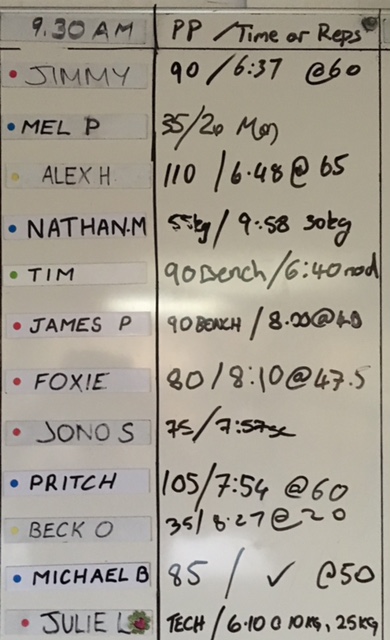 9.30 AM PP / Time or Reps
JIMMY 90 / 6:37 @60
MEL P 35/20 Mon
ALEX H 110 / 6.48 @ 65
NATHAN.M 55kg / 9:58 30kg
TIM 90 Bench / 6:40 mod
JAMES P 90 BENCH / 8.00@40
FOXIE 80 / 8:10 @47.5
JONO S 75/7:57
PRITCH 105/7:54 @60
BECK O 35/8:27 @20
MICHAEL B 85 / ✓ @50
JULIE L TECH / 6.10 @ 10KG, 25KG